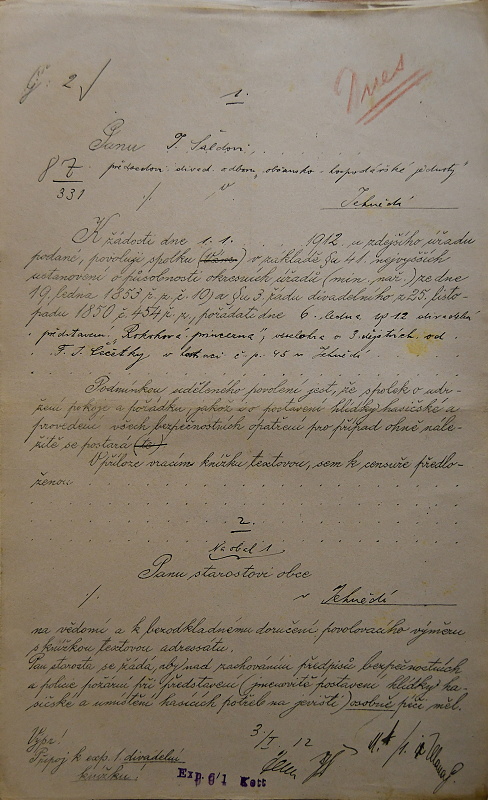 Č. 2
Dnes
1.
Panu F. Šaldovi,
87
331
předsedovi divad. odboru „občansko-hospodářské jednoty“
v
Jehnědí
K žádosti dne 1.1. 1912 u zdejšího úřadu
podané, povoluji spolku v základě §u 41. nejvyšších
ustanovení o působnosti okresních úřadů (min. nař.) ze dne
19. ledna 1853 ř. z. č. 10) a §u 3. řádu divadelního z 25. listo-
padu 1850 č. 454 ř. z., pořádati dne 6. ledna 1912 divadelní
představení „Rohohová princezna“, veselohra o 3 dějstvích od
F. J. Čečetky v hostinci č. p. 45 v Jehnědí
Podmínkou uděleného povolení jest, že spolek o udr-
žení pokoje a pořádku, jakož i o postavení hlídky hasičské a
provedení všech bezpečnostních opatření pro případ ohně nále-
žitě se postará (te)
V příloze vracím knížku textovou, sem k censuře předlo-
ženou
2.
Na obal 1
Panu starostovi obce
v Jehnědí
na vědomí a k bezodkladnému doručení povolovacího výměru
s knížkou textovou adresátu.
Pan starosta se žádá, aby nad zachováním předpisů bezpečnostních
a policie požární při představení (jmenovitě postavení hlídky ha-
sičské a umístění hasicích potřeb na jevišti) osobně péči měl
3/I 12
Vypr!
Připoj k exp. 1 divadelní
knížku.
Exp. 6/1 Kott